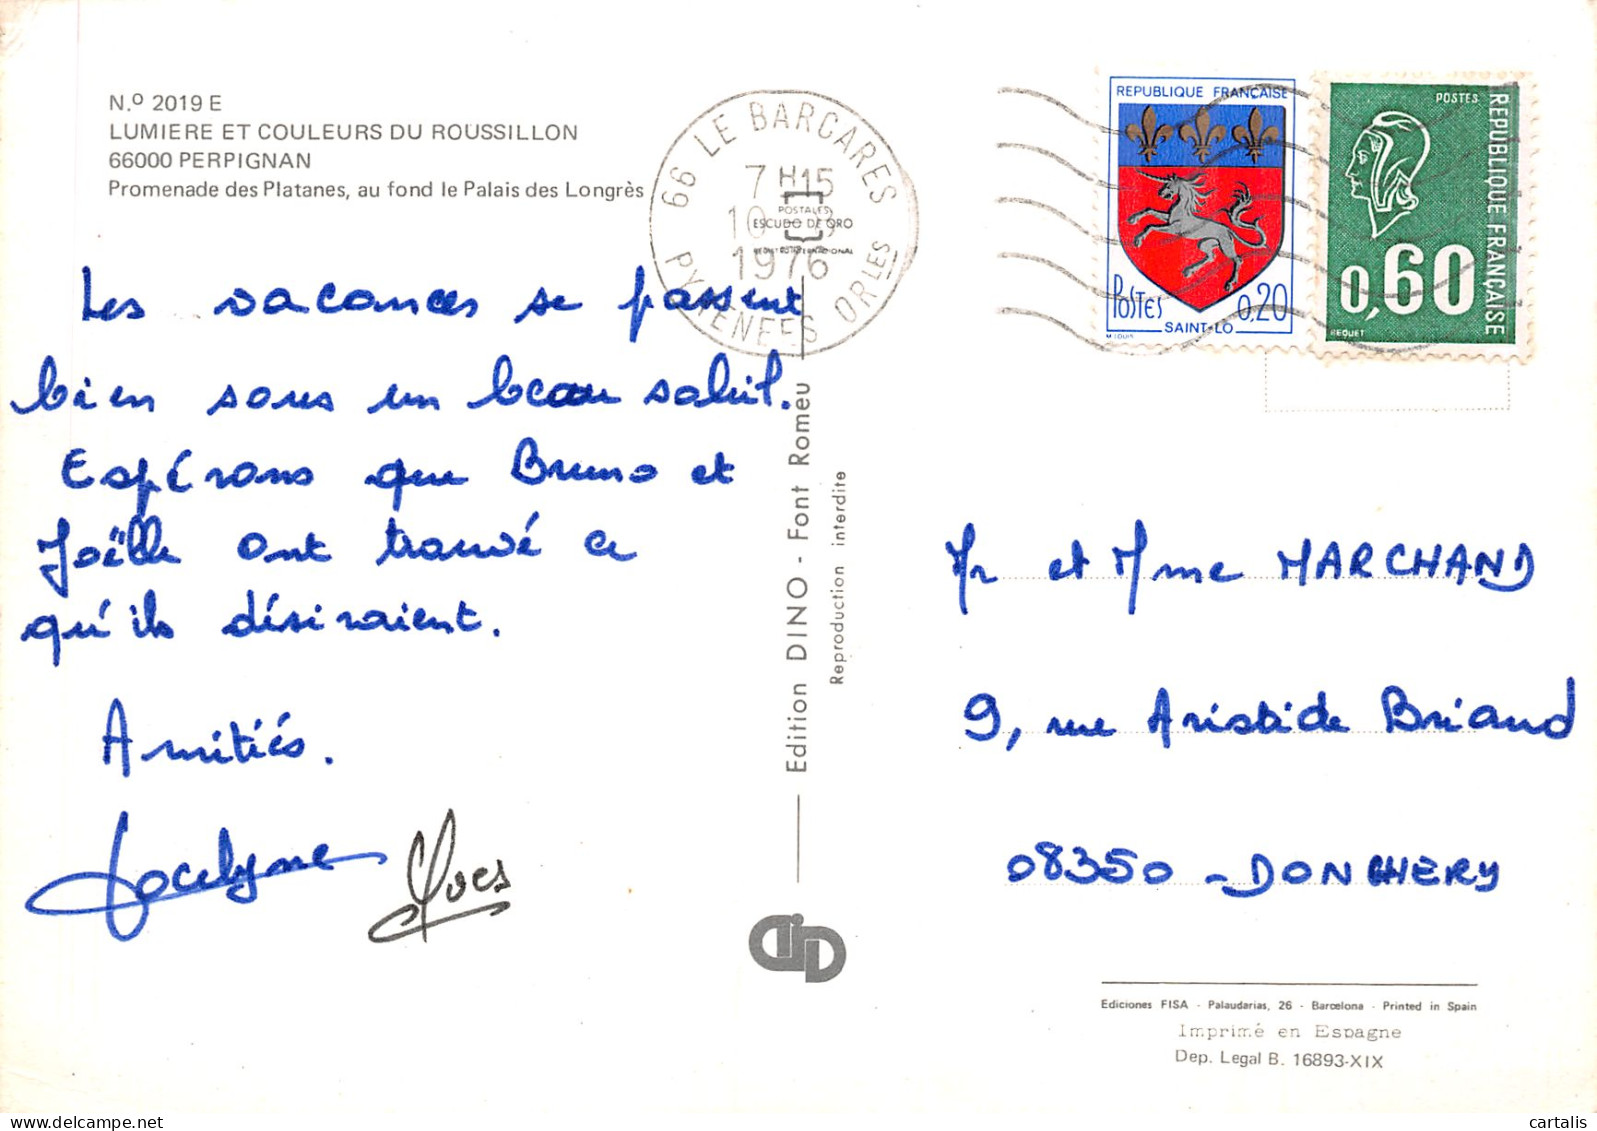 N.º 2019 E
LUMIERE ET COULEURS DU ROUSSILLON
66000 PERPIGNAN
Promenade des Platanes, au fond le Palais des Longrès
Les vacances se passent
bien sous un beau soleil.
Espérons que Bruno et
Joëlle ont trouvé ce
qu'ils désiraient.
Amitiés.
Jocelyne Yves
66 LE BARCARES
7 H15
10
1976
PYRENEES ORLES
POSTALES
ESCUDO DE ORO
Edition DINO - Font Romeu
Reproduction interdite
REPUBLIQUE FRANÇAISE
POSTES
0,20
SAINT-LO
M LOUIS
POSTES
REPUBLIQUE FRANÇAISE
0,60
BEQUET
Mr et Mme MARCHAND
9, rue Aristide Briand
08350 - DONCHERY
Ediciones FISA - Palaudarias, 26 - Barcelona - Printed in Spain
Imprimé en Espagne
Dep. Legal B. 16893-XIX
cartalis.com